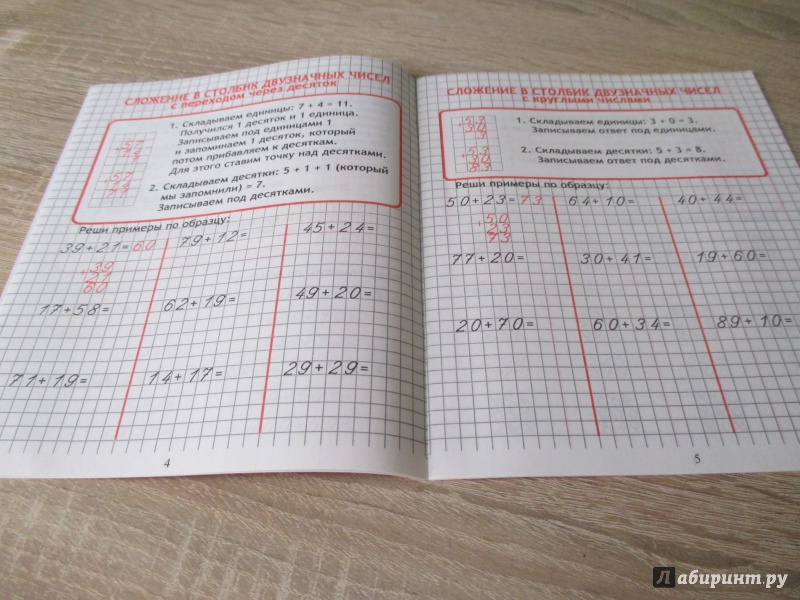 СЛОЖЕНИЕ В СТОЛБИК ДВУЗНАЧНЫХ ЧИСЕЛ
с переходом через десяток
1. Складываем единицы: 7 + 4 = 11.
Получился 1 десяток и 1 единица.
Записываем под единицами 1
и запоминаем 1 десяток, который
потом прибавляем к десяткам.
Для этого ставим точку над десятками.
2. Складываем десятки: 5 + 1 + 1 (который
мы запомнили) = 7.
Записываем под десятками.
Реши примеры по образцу:
39+21=60 79+12= 45+24=
+39
21
60
17+58= 62+19= 49+20=
71+19= 14+17= 29+29=
4
СЛОЖЕНИЕ В СТОЛБИК ДВУЗНАЧНЫХ ЧИСЕЛ
с круглыми числами
+53
30
3
+53
30
83
1. Складываем единицы: 3 + 0 = 3.
Записываем ответ под единицами.
2. Складываем десятки: 5 + 3 = 8.
Записываем ответ под десятками.
Реши примеры по образцу:
50+23=73 64+10= 40+44=
+50
23
73
77+20= 30+41= 19+60=
20+70= 60+34= 89+10=
5
Лабиринт.ру